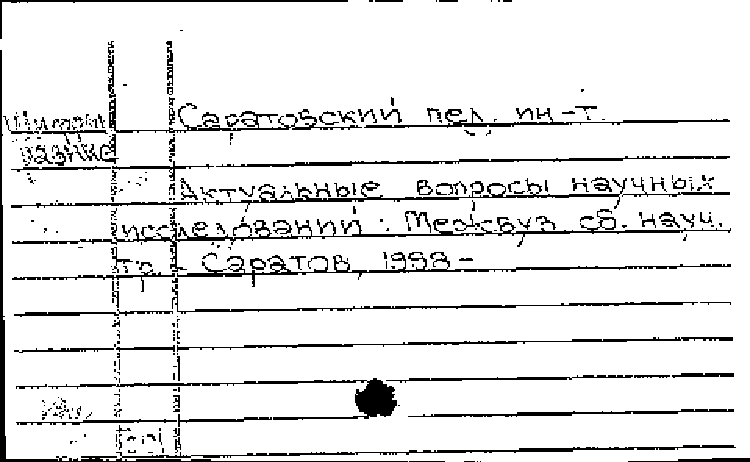 Шифры Саратовский пед. ин-т.
разные
Актуальные вопросы научных
исследований : Межвуз сб. науч.
тр. - Саратов, 1998 -